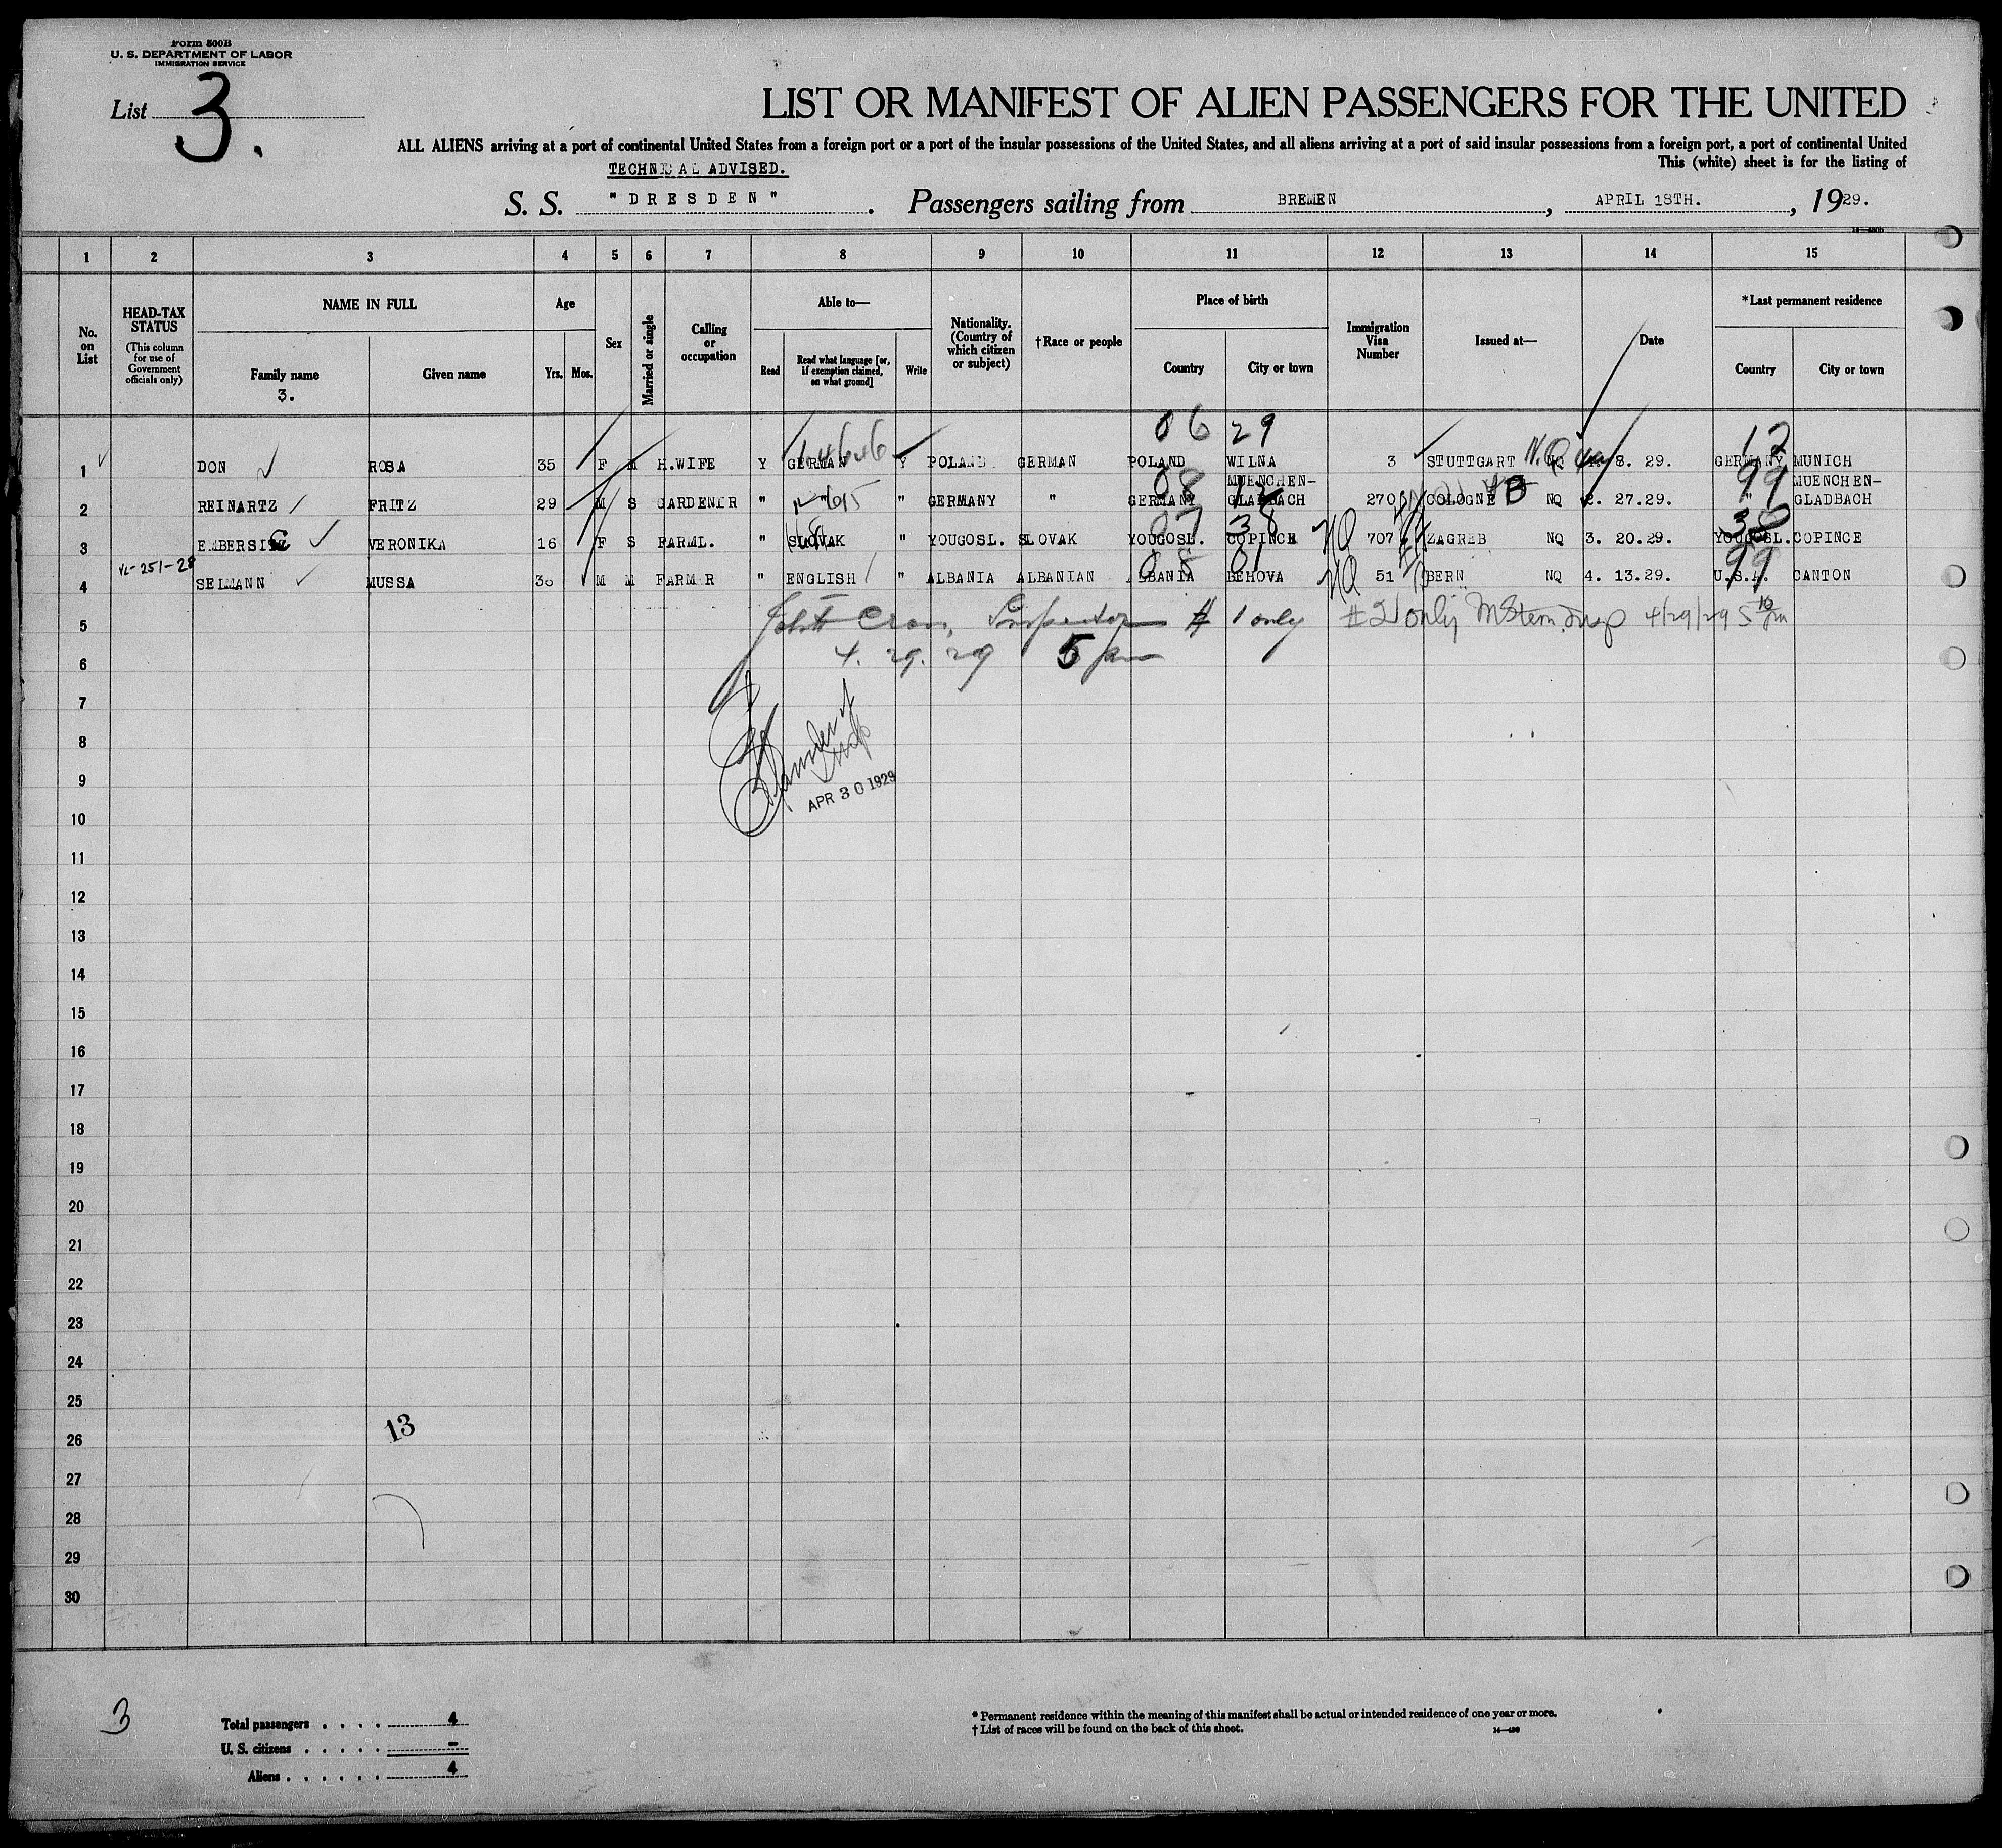 Form 500B
U. S. DEPARTMENT OF LABOR
IMMIGRATION SERVICE
List 3.
LIST OR MANIFEST OF ALIEN PASSENGERS FOR THE UNITED
ALL ALIENS arriving at a port of continental United States from a foreign port or a port of the insular possessions of the United States, and all aliens arriving at a port of said insular possessions from a foreign port, a port of continental United
This (white) sheet is for the listing of
TECHNICAL ADVISED.
S. S. "DRESDEN". Passengers sailing from BREMEN, APRIL 18TH., 1929.
1 2 3 4 5 6 7 8 9 10 11 12 13 14 15
No. on List
HEAD-TAX STATUS
(This column for use of Government officials only)
NAME IN FULL
Family name
3.
Given name
Age
Yrs. Mos.
Sex
Married or single
Calling or occupation
Able to—
Read
Read what language [or, if exemption claimed, on what ground]
Write
Nationality. (Country of which citizen or subject)
†Race or people
Place of birth
Country
City or town
Immigration Visa Number
Issued at—
Date
*Last permanent residence
Country
City or town
06 29 12
1 DON ROSA 35 F M H.WIFE Y GERMAN Y POLAND GERMAN POLAND WILNA 3 STUTTGART NQ 8. 29. GERMANY MUNICH
08 12 99
2 REINARTZ FRITZ 29 M S GARDENER " " " GERMANY " GERMANY MUENCHEN-GLADBACH 270 COLOGNE NQ 2. 27.29. " MUENCHEN-GLADBACH
07 38 38
3 VERONIKA 16 F S FARML. " SLOVAK " YOUGOSL. SLOVAK YOUGOSL. COPINCE NQ 707 ZAGREB NQ 3. 20.29. YOUGOSL. COPINCE
VL-251-28
08 01 99
4 SELMANN MUSSA M M FARMER " ENGLISH " ALBANIA ALBANIAN ALBANIA BEHOVA NQ 51 BERN NQ 4. 13.29. U.S.A. CANTON
5 Inspector # 1 only #2 only 4/29/29 5 pm
6 4. 29. 29 5 pm
7
8
9
APR 30 1929
10
11
12
13
14
15
16
17
18
19
20
21
22
23
24
25
13
26
27
28
29
30
3
Total passengers . . . . 4
U. S. citizens . . . . . -
Aliens . . . . . . 4
* Permanent residence within the meaning of this manifest shall be actual or intended residence of one year or more.
† List of races will be found on the back of this sheet.